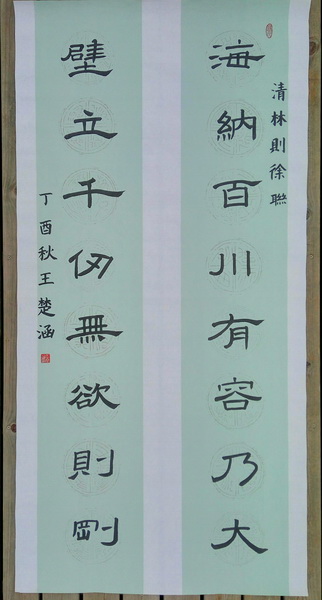 清林則徐聯
海納百川有容乃大
壁立千仞無欲則剛
丁酉秋王楚涵